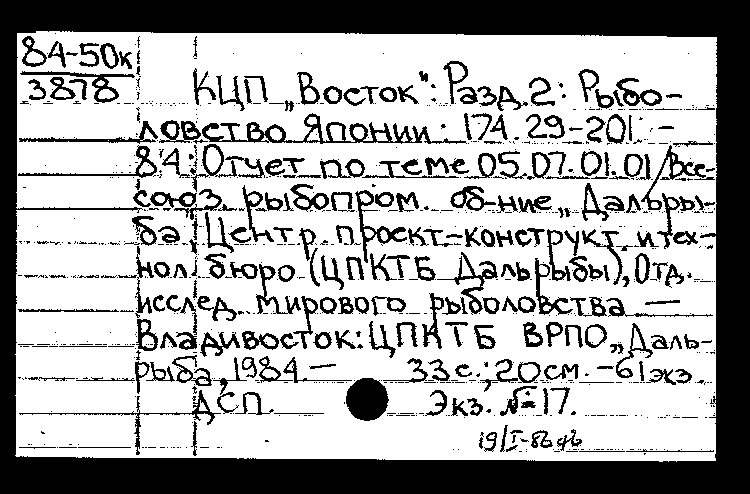 84-50к
3878
КЦП „Восток": Разд.2: Рыбо-
ловство Японии: 174.29-201. -
84: Отчет по теме 05.07.01.01/Все-
союз. рыбопром. об-ние „Дальры-
ба", Центр. проект.-конструкт. и тех-
нол. бюро (ЦПКТБ Дальрыбы), Отд.
исслед. мирового рыболовства —
Владивосток: ЦПКТБ ВРПО „Даль-
рыба, 1984. — 33 с.; 20 см. - 61 экз.
ДСП. Экз. № 17.
19/I-86